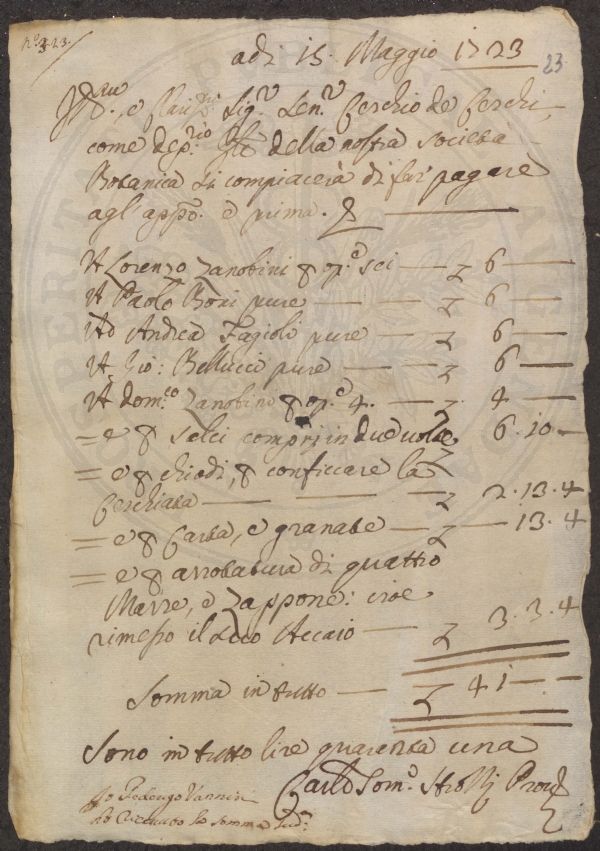 n.º 23.
adi 15. Maggio 1723
23
Ill.mo, e Clariss.mo Sig.r Sen.r Cerchio de Cerchi,
come dep.rio della nostra Società
Botanica si compiacerà di far pagare
agl' app.º e prima. P
A Lorenzo Zanobini p op.e sei — £ 6 —
A Paolo Boni pure — £ 6 —
Ad Andrea Fagioli pure — £ 6 —
A Gio: Bellucci pure — £ 6 —
A Dom.co Zanobini p op.e 4. — £ 4 —
= e p selci compri in due volte £ 6.10 —
= e p chiodi, p conficcare la
Cerchiata — £ 2.13.4
= e p Carta, e granate — £ — 13.4
= e p arrotatura di quattro
Marre, e Zappone: cioè
rimesso il Acciaio — £ 3.3.4
Somma in tutto — £ 41 —
Sono in tutto lire quaranta una
Carlo Tom.º Strozzi Prov.
Io Federigo Vannini
ho ricevuto la somma sud.a